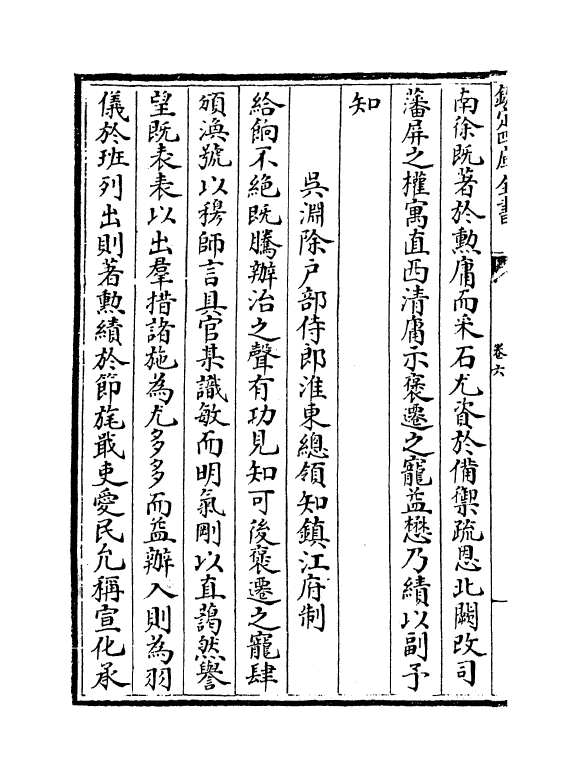 欽定四庫全書
卷六
南徐既著於勲庸而采石尤資於備禦疏恩北闕改司
藩屏之權寓直西清庸示褒遷之寵益懋乃績以副予
知
吳淵除户部侍郎淮東總領知鎮江府制
給餉不絶既騰辦治之聲有功見知可後褒遷之寵肆
頒渙號以穆師言具官某識敏而明氣剛以直藹然譽
望既表表以出羣措諸施為尤多多而益辦入則為羽
儀於班列出則著勲績於節旄戢吏愛民允稱宣化承